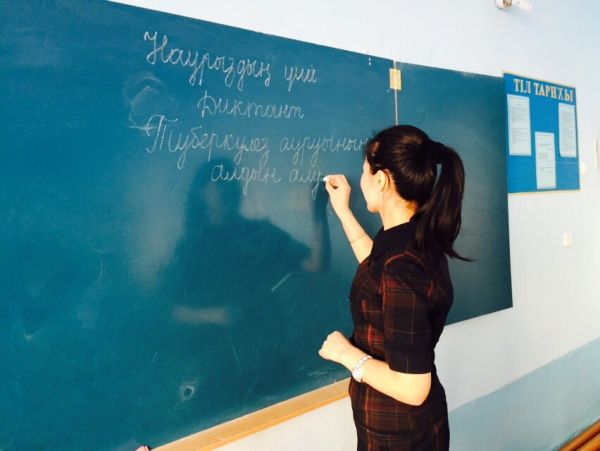 Наурыздың үші
Диктант
Туберкулез ауруының
алдын алу
ТІЛ ТАРИХЫ